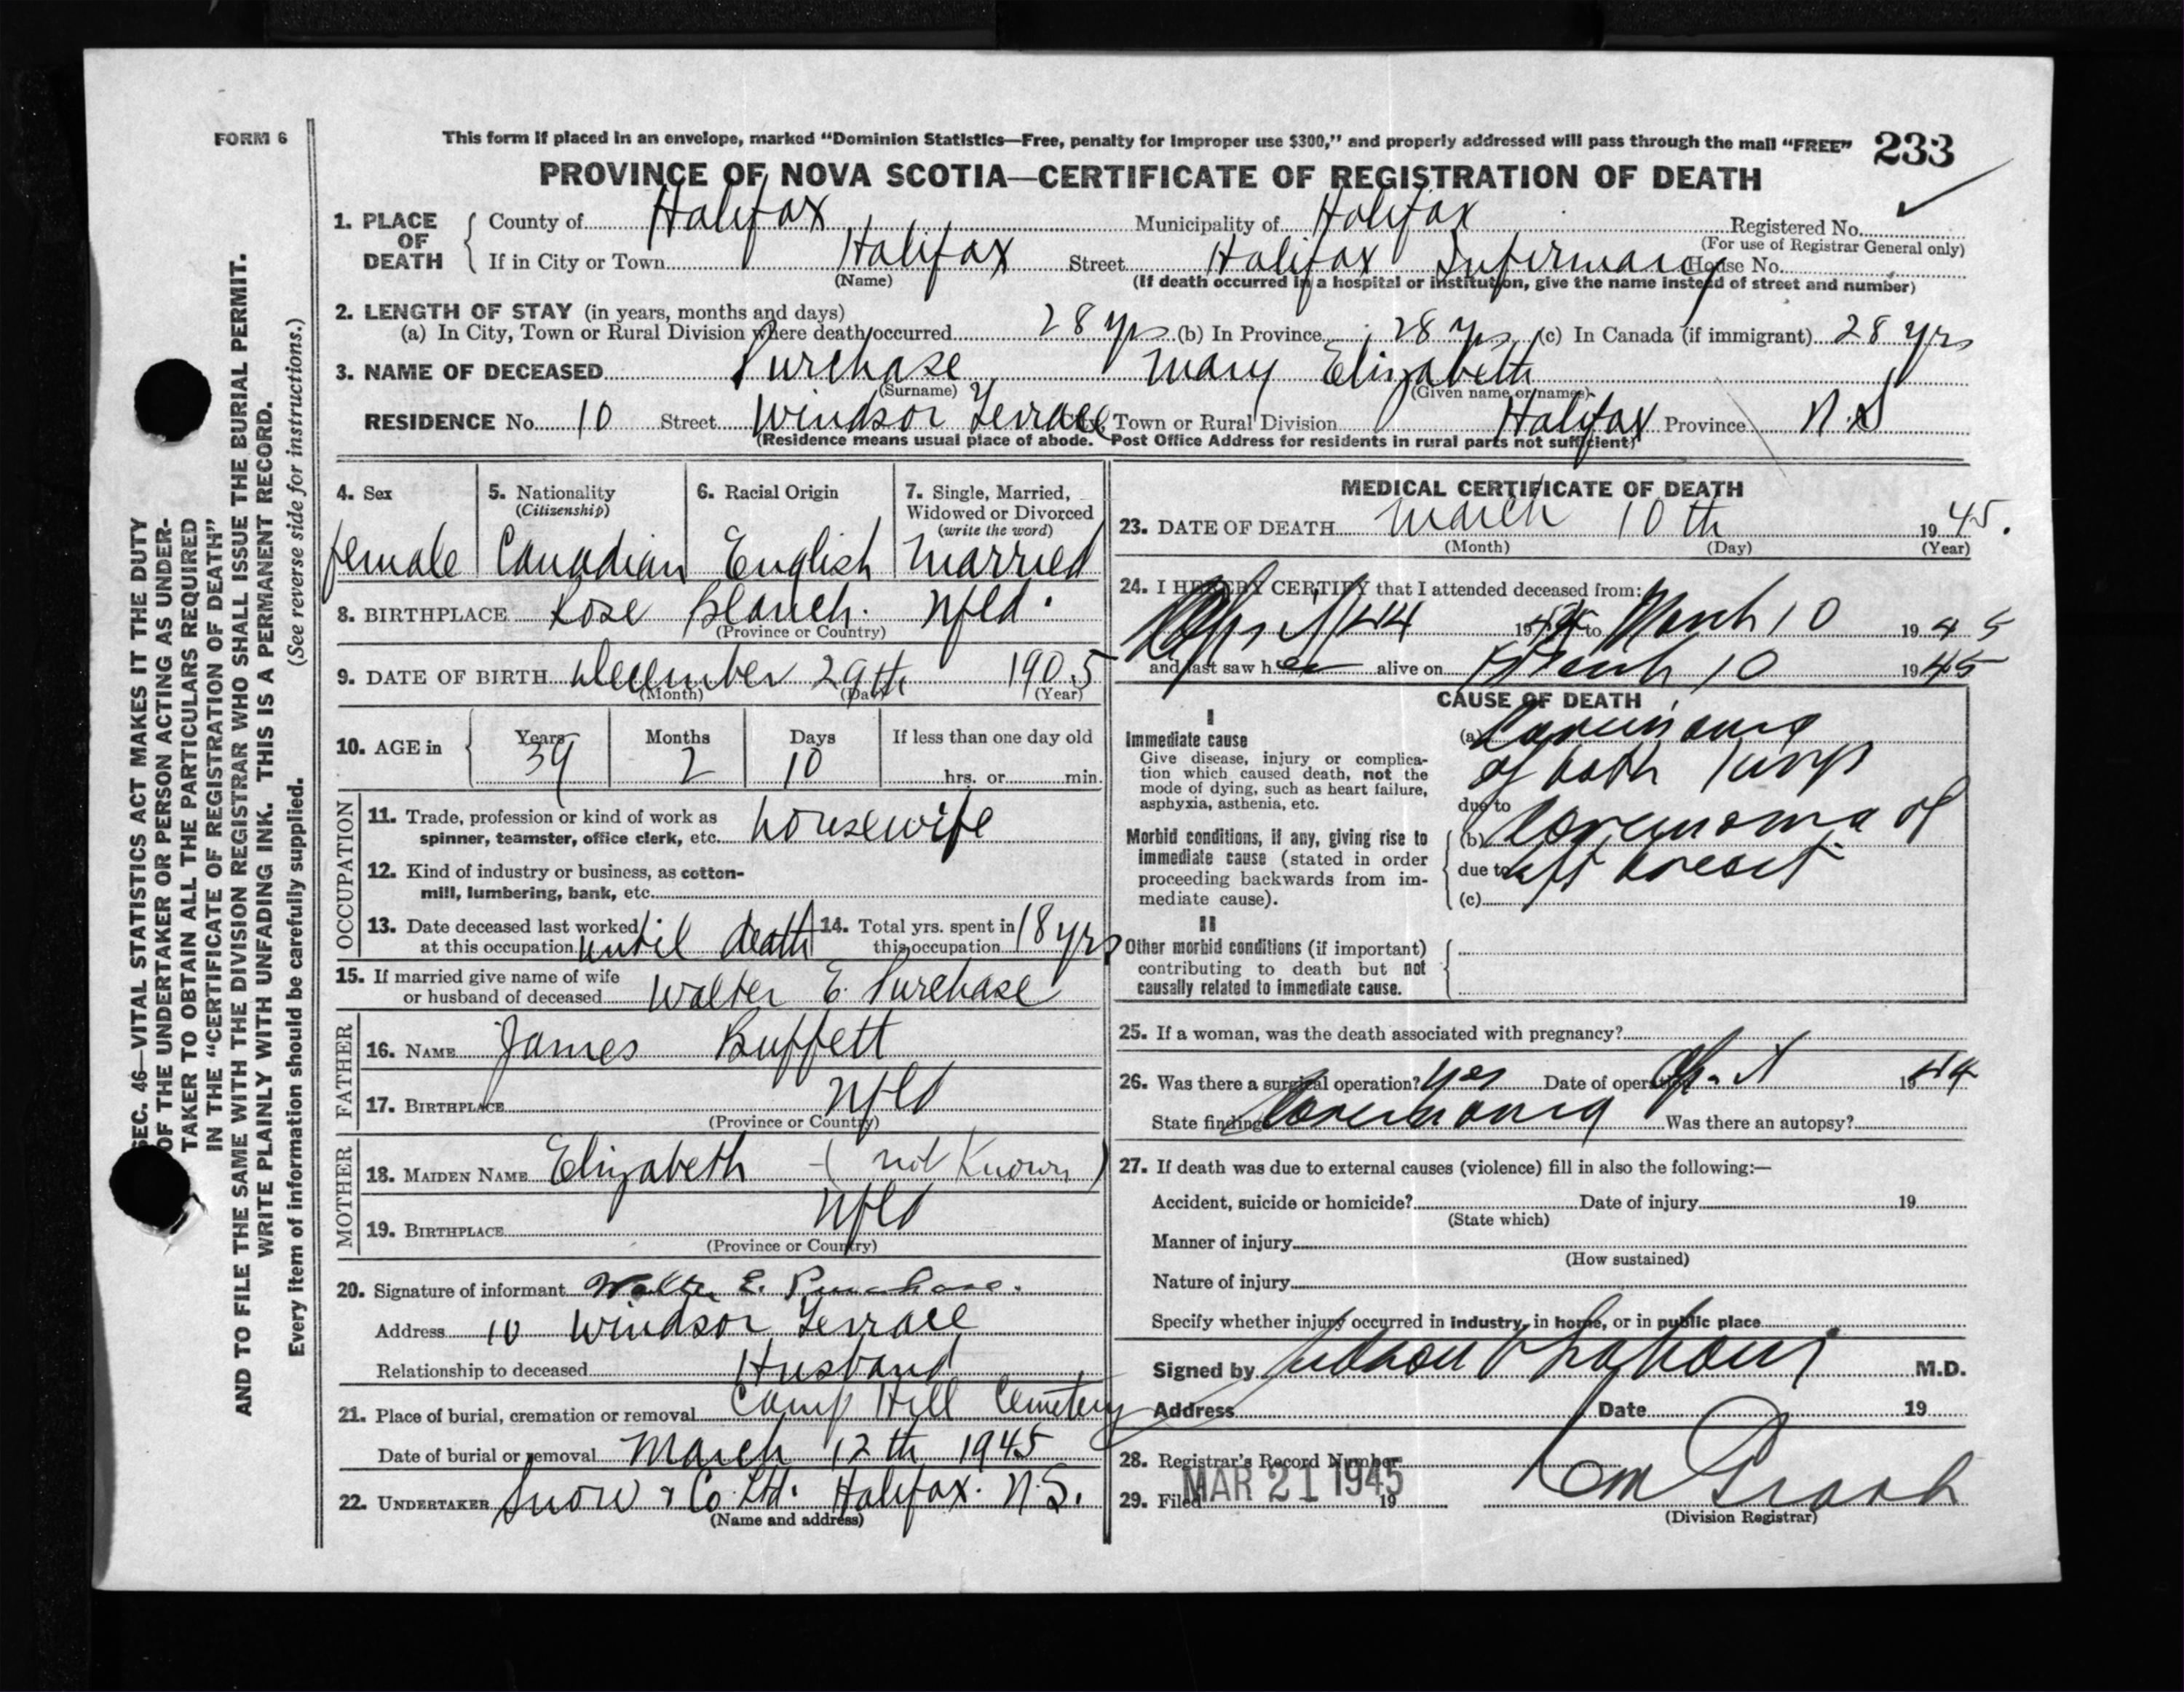 FORM 6
This form if placed in an envelope, marked "Dominion Statistics—Free, penalty for improper use $300," and properly addressed will pass through the mail "FREE" 233
PROVINCE OF NOVA SCOTIA—CERTIFICATE OF REGISTRATION OF DEATH
1. PLACE OF DEATH
County of Halifax Municipality of Halifax Registered No.
(For use of Registrar General only)
If in City or Town Halifax Street Halifax Infirmary House No.
(Name) (If death occurred in a hospital or institution, give the name instead of street and number)
2. LENGTH OF STAY (in years, months and days)
(a) In City, Town or Rural Division where death occurred 28 yrs (b) In Province 28 yrs (c) In Canada (if immigrant) 28 yrs
3. NAME OF DECEASED Purchase Mary Elizabeth
(Surname) (Given name or names)
RESIDENCE No. 10 Street Windsor Terrace City, Town or Rural Division Halifax Province N.S
(Residence means usual place of abode. Post Office Address for residents in rural parts not sufficient)
4. Sex
female
5. Nationality
(Citizenship)
Canadian
6. Racial Origin
English
7. Single, Married,
Widowed or Divorced
(write the word)
Married
8. BIRTHPLACE Rose Blanch. Nfld.
(Province or Country)
9. DATE OF BIRTH December 29th 1905
(Month) (Day) (Year)
10. AGE in
Years Months Days If less than one day old
39 2 10 hrs. or min.
OCCUPATION
11. Trade, profession or kind of work as
spinner, teamster, office clerk, etc. housewife
12. Kind of industry or business, as cotton-
mill, lumbering, bank, etc.
13. Date deceased last worked
at this occupation until death
14. Total yrs. spent in
this occupation 18 yrs
15. If married give name of wife
or husband of deceased Walter E. Purchase
FATHER
16. NAME James Buffett
17. BIRTHPLACE Nfld
(Province or Country)
MOTHER
18. MAIDEN NAME Elizabeth - ( not Known )
19. BIRTHPLACE Nfld
(Province or Country)
20. Signature of informant Walter E. Purchase.
Address 10 Windsor Terrace
Relationship to deceased Husband
21. Place of burial, cremation or removal Camp Hill Cemetery
Date of burial or removal March 12th 1945
22. UNDERTAKER Snow & Co. Ltd. Halifax. N.S.
(Name and address)
MEDICAL CERTIFICATE OF DEATH
23. DATE OF DEATH March 10th 1945.
(Month) (Day) (Year)
24. I HEREBY CERTIFY that I attended deceased from:
19 to March 10 1945
and last saw her alive on March 10 1945
CAUSE OF DEATH
I
Immediate cause
Give disease, injury or complica-
tion which caused death, not the
mode of dying, such as heart failure,
asphyxia, asthenia, etc.
(a) Carcinoma
of both lungs
due to
Morbid conditions, if any, giving rise to
immediate cause (stated in order
proceeding backwards from im-
mediate cause).
(b) Carcinoma of
due to left breast
(c)
II
Other morbid conditions (if important)
contributing to death but not
causally related to immediate cause.
25. If a woman, was the death associated with pregnancy?
26. Was there a surgical operation? yes Date of operation 1944
State findings Carcinoma Was there an autopsy?
27. If death was due to external causes (violence) fill in also the following:—
Accident, suicide or homicide? Date of injury 19
(State which)
Manner of injury
(How sustained)
Nature of injury
Specify whether injury occurred in industry, in home, or in public place
Signed by M.D.
Address Date 19
28. Registrar's Record Number
29. Filed MAR 21 1945 19
(Division Registrar)
SEC. 46—VITAL STATISTICS ACT MAKES IT THE DUTY
OF THE UNDERTAKER OR PERSON ACTING AS UNDER-
TAKER TO OBTAIN ALL THE PARTICULARS REQUIRED
IN THE "CERTIFICATE OF REGISTRATION OF DEATH"
AND TO FILE THE SAME WITH THE DIVISION REGISTRAR WHO SHALL ISSUE THE BURIAL PERMIT.
WRITE PLAINLY WITH UNFADING INK. THIS IS A PERMANENT RECORD.
Every item of information should be carefully supplied. (See reverse side for instructions.)